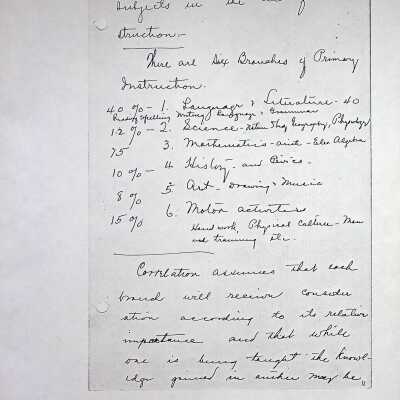 Subjects in the of
struction.-
There are Six Branches of Primary
Instruction.
40 % - 1. Language & Literature - 40
Reading Spelling Writing Language & Grammar
12 % - 2. Science - Nature Study, Geography, Physiology
75 3. Mathematics - arith - Elec Algebra
10 % - 4 History - and Civics -
8 % 5. Art - Drawing & Music
15 % 6. Motor activities
Hand work, Physical Culture - Man
ual training etc.
Correlation assumes that each
branch will receive consider
ation according to its relative
importance and that while
one is being taught the knowl-
edge gained in another may be